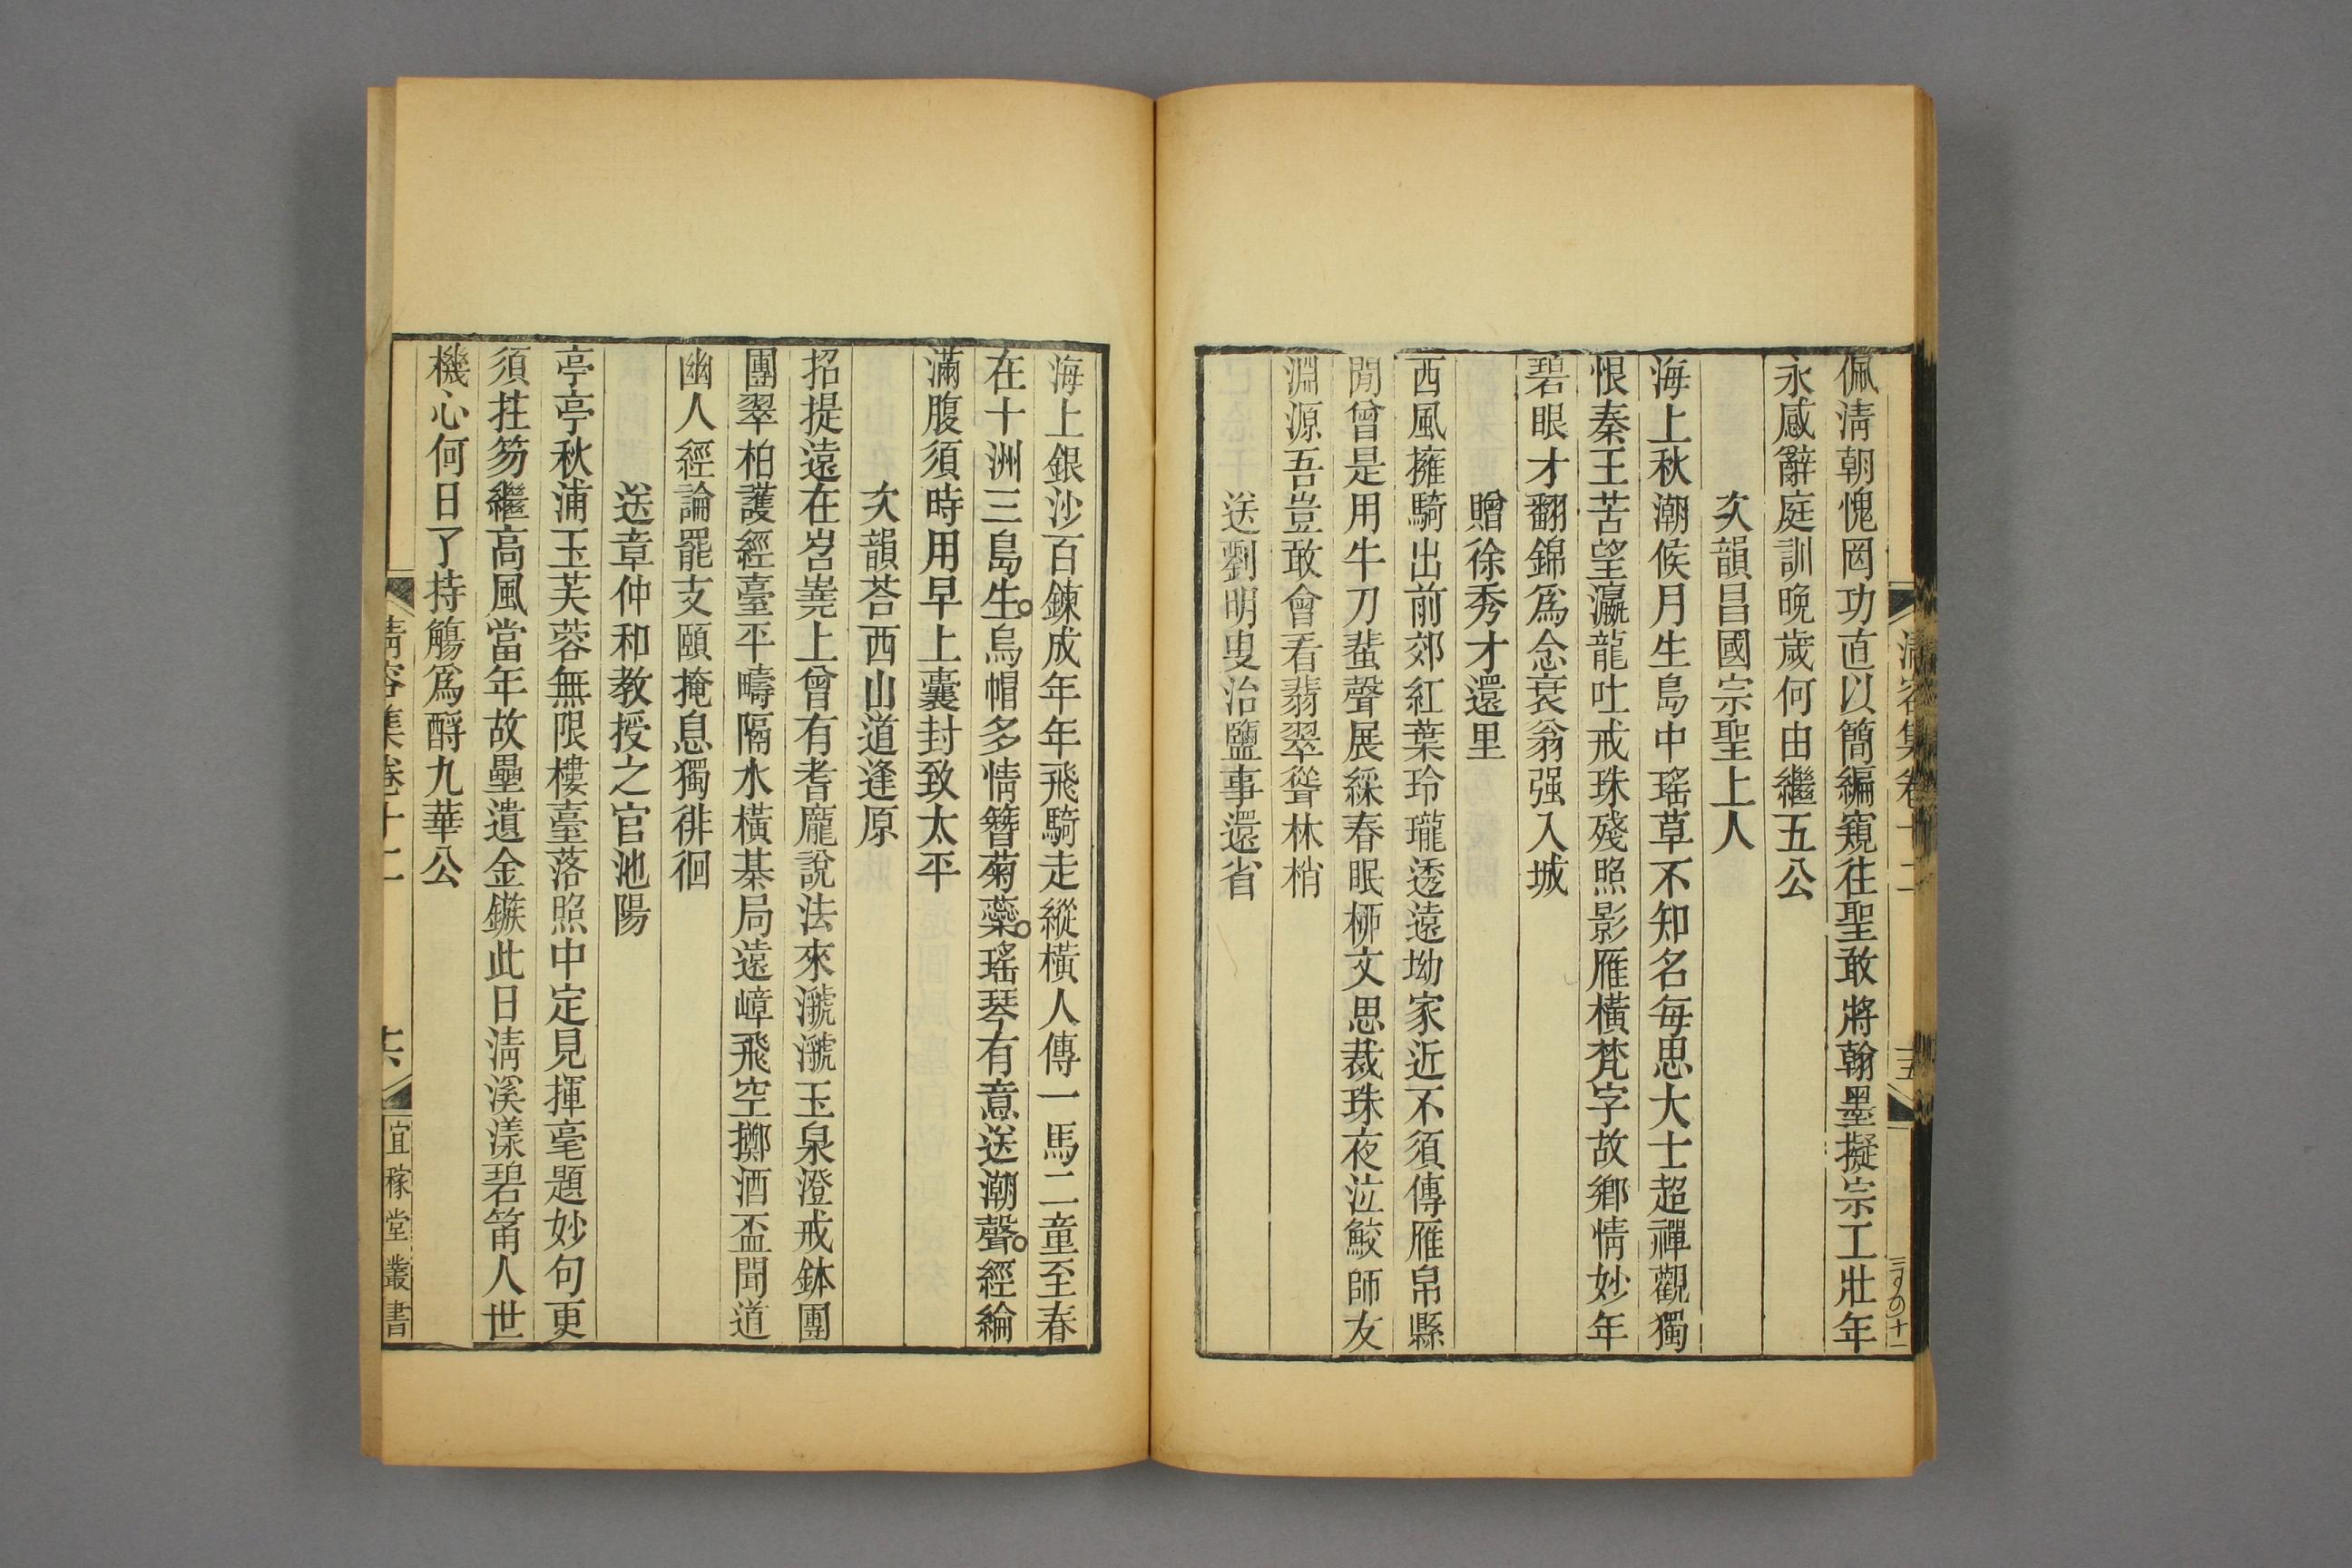 清容集卷十二
十五
佩淸朝愧罔功直以簡編窺往聖敢將翰墨擬宗工壯年
永感辭庭訓晚歲何由繼五公
次韻昌國宗聖上人
海上秋潮候月生島中瑤草不知名每思大士超禪觀獨
恨秦王苦望瀛龍吐戒珠殘照影雁橫梵字故鄉情妙年
碧眼才翻錦爲念衰翁强入城
贈徐秀才還里
西風擁騎出前郊紅葉玲瓏透遠坳家近不須傳雁帛縣
閒曾是用牛刀蛩聲展綵春眠柳文思裁珠夜泣鮫師友
淵源吾豈敢會看翡翠聳林梢
送劉明叟治鹽事還省
海上銀沙百鍊成年年飛騎走縱橫人傳一馬二童至春
在十洲三島生烏帽多情簪菊蘂瑤琴有意送潮聲經綸
滿腹須時用早上囊封致太平
次韻荅西山道逢原
招提遠在岧嶤上曾有耆龐說法來虢虢玉泉澄戒鉢團
團翠柏護經臺平疇隔水橫棊局遠嶂飛空擲酒盃聞道
幽人經論罷支頤掩息獨徘徊
送章仲和教授之官池陽
亭亭秋浦玉芙蓉無限樓臺落照中定見揮毫題妙句更
須拄笏繼高風當年故壘遺金鏃此日淸溪漾碧筩人世
機心何日了持觴爲酹九華公
清容集卷十二
十六
宜稼堂叢書